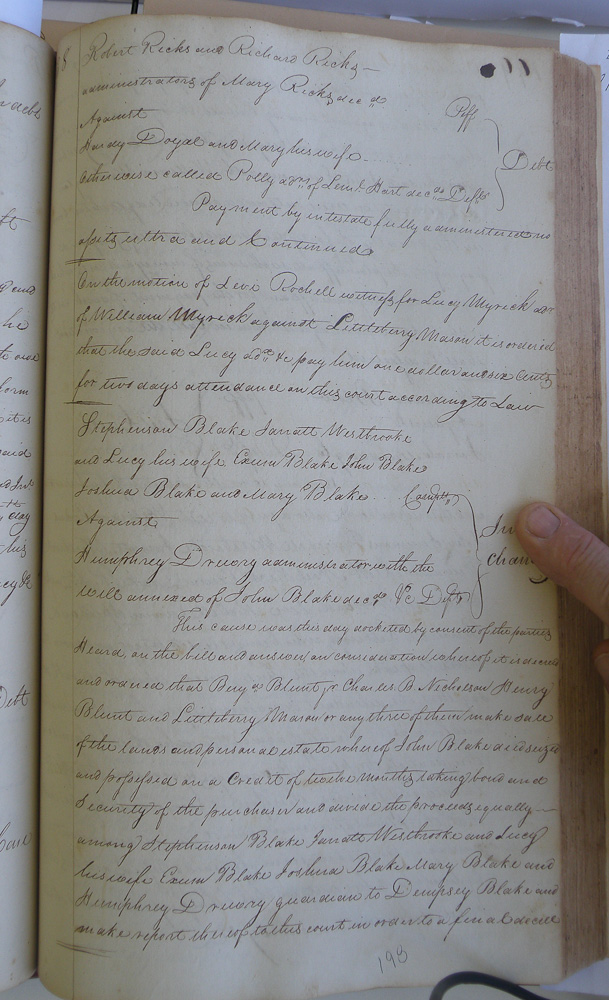 Robert Ricks and Richard Ricks
administrators of Mary Ricks dec.d
Plff
Against
Hardy Doyal and Mary his wife
otherwise called Polly adx of Lem.l Hart dec.d Defts
Debt
Payment by intestate fully administered no
assets ultra and Continued
On the motion of Levi Rochell witness for Lucy Myrick adx
of William Myrick against Littleberry Mason it is ordered
that the said Lucy adx &c pay him one dollar and six Cents
for two days attendance on this court according to Law
Stephenson Blake Jarratt Westbrooke
and Lucy his wife Exum Blake John Blake
Joshua Blake and Mary Blake Complts
Against
In
Chan
Humphrey Drewry administrator with the
will annexed of John Blake dec.d &c Defts
This cause was this day docketed by consent of the parties
Heard, on the bill and answer on consideration whereof it is decreed
and ordered that Benj.a Blunt jr Charles B. Nicholson Henry
Blunt and Littleberry Mason or any three of them make sale
of the lands and personal estate whereof John Blake died seized
and possessed on a Credit of twelve months taking bond and
Security of the purchaser and divide the proceeds equally
among Stephenson Blake Jarratt Westbrooke and Lucy
his wife Exum Blake Joshua Blake Mary Blake and
Humphrey Drewry guardian to Dempsey Blake and
make report thereof to this court in order to a final decree
198